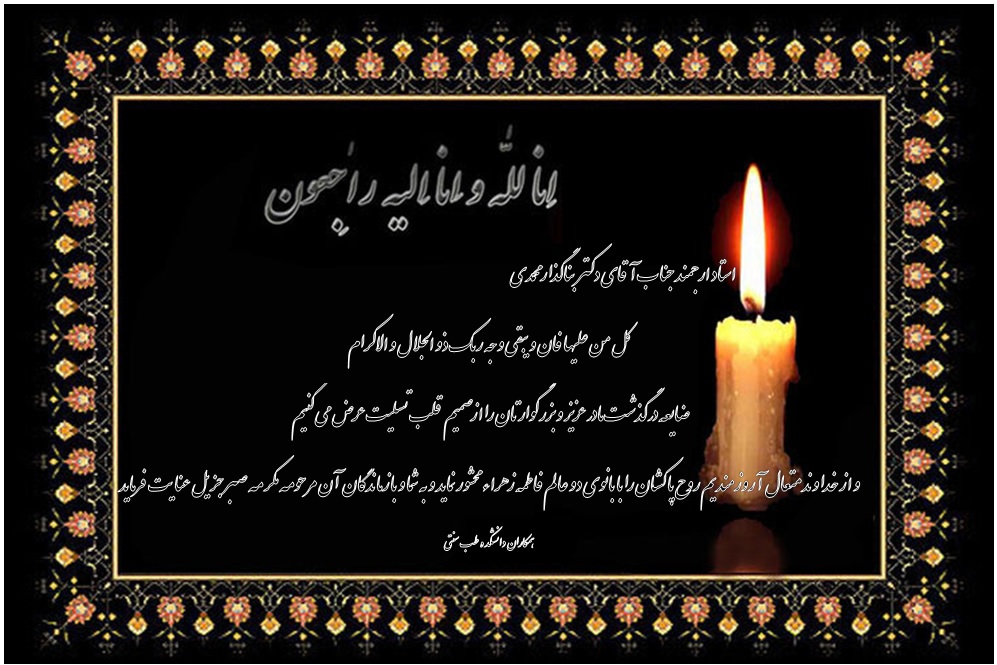 انا لله و انا الیه راجعون
استاد ارجمند جناب آقای دکتر بناگذار محمدی
کل من علیها فان و یبقی وجه ربک ذو الجلال و الاکرام
ضایعه درگذشت مادر عزیز و بزرگوارتان را از صمیم قلب تسلیت عرض می کنیم
و از خداوند متعال آروزمندیم روح پاکشان را با بانوی دو عالم فاطمه زهراء محشور نماید و به شما و بازماندگان آن مرحومه مکرمه صبر جزیل عنایت فرماید
همکاران دانشکده طب سنتی